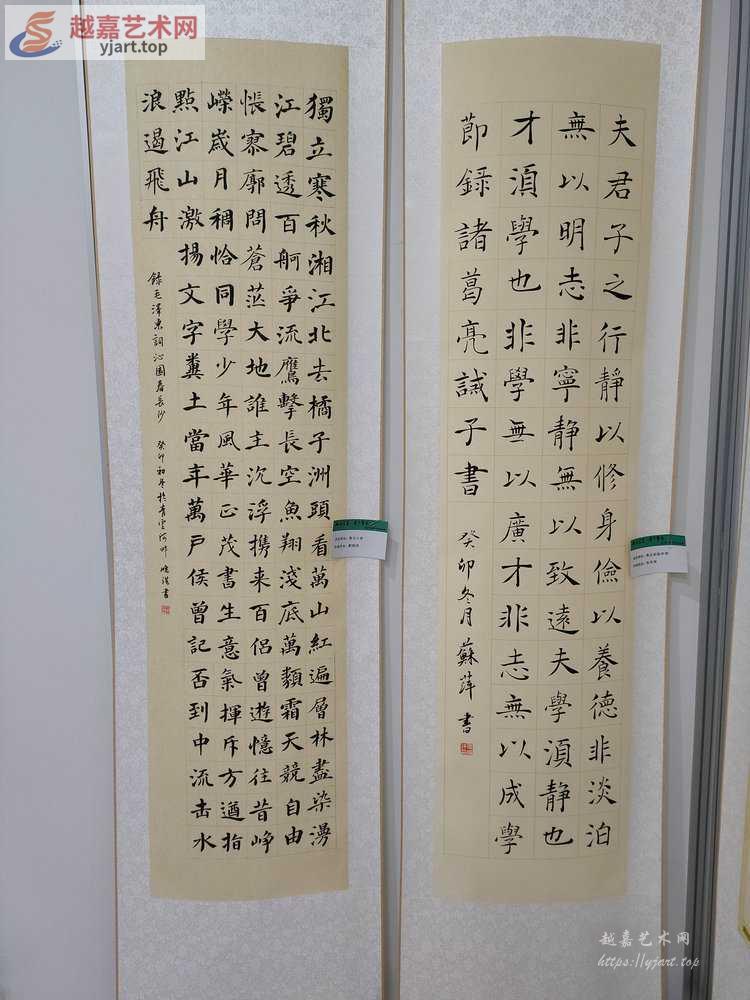 越嘉艺术网
yjart.top
夫君子之行靜以修身儉以養德非淡泊
無以明志非寧靜無以致遠夫學湏靜也
才湏學也非學無以廣才非志無以成學
節録諸葛亮誡子書
癸卯冬月蘇萍書
獨立寒秋湘江北去橘子洲頭看萬山紅遍層林盡染漫
江碧透百舸爭流鷹擊長空魚翔淺底萬類霜天競自由
悵寥廓問蒼茫大地誰主沉浮携来百侣曾遊憶往昔崢
嶸歲月稠恰同學少年風華正茂書生意氣揮斥方遒指
點江山激揚文字糞土當年萬戶侯曾記否到中流击水
浪遏飛舟
錄毛澤東詞沁園春長沙 癸卯初冬於青雲 書
越嘉艺术网
https://yjart.top